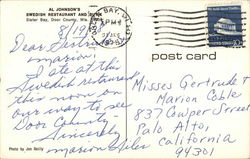 AL JOHNSON'S
SWEDISH RESTAURANT AND
Sister Bay, Door County, Wis.
8/19
Dear
marion,
I ate at the
Swedish restaurant
this noon on
our way to see
Door County.
Sincerely
marion
BAY,
PM
post card
Misses Gertrude +
Marion Coble
837 Cowper Street
Palo Alto,
California
94301
Photo by Jon Reilly